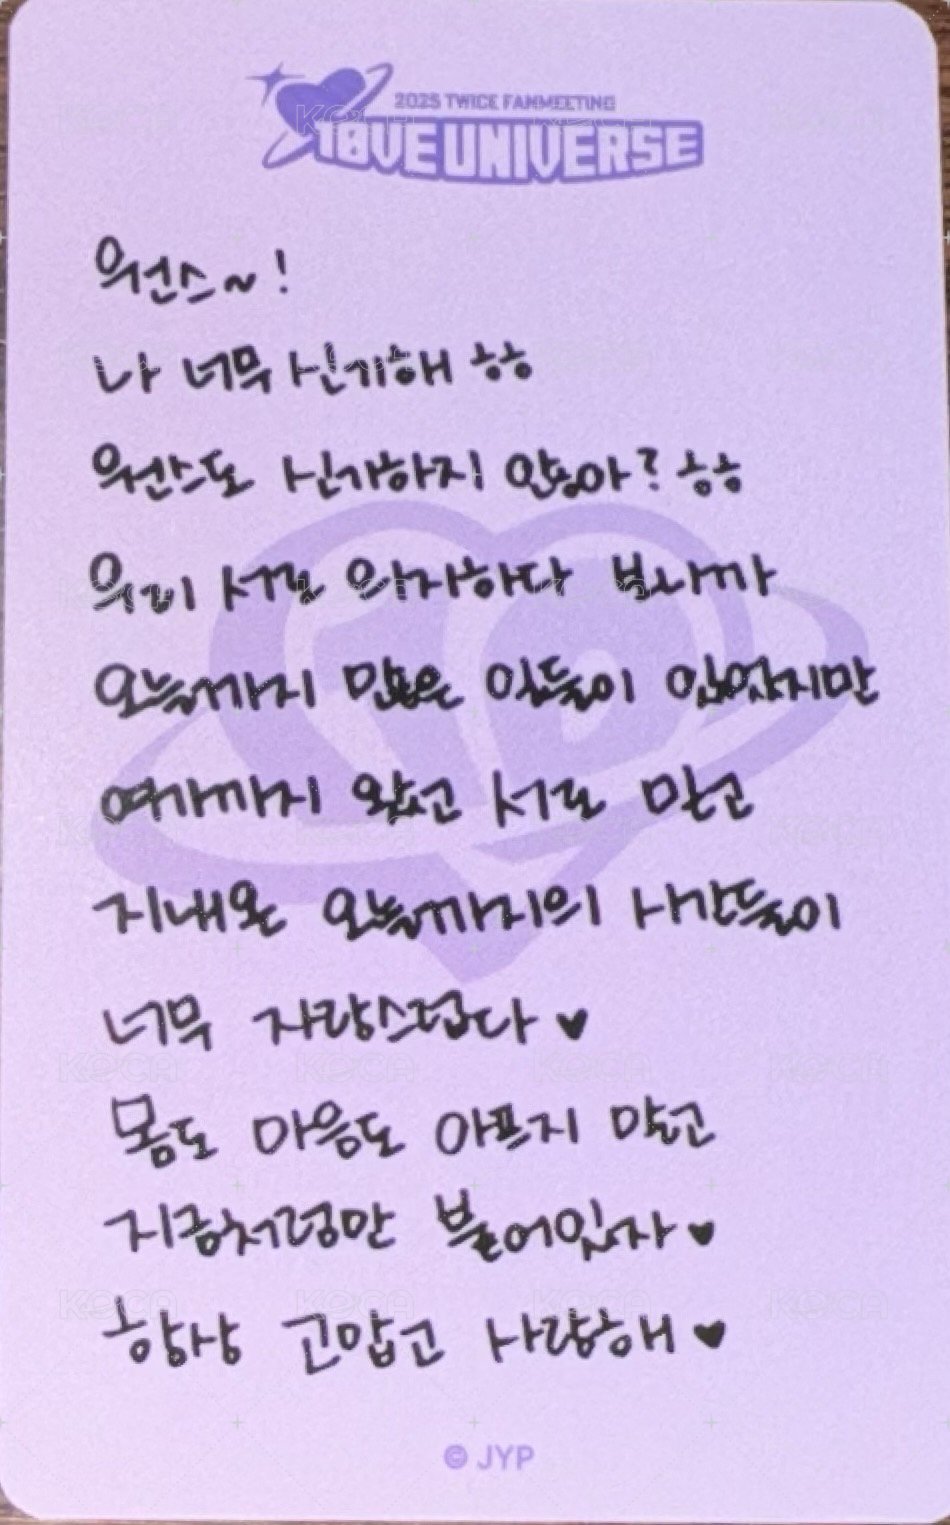 2025 TWICE FANMEETING
10VE UNIVERSE
원스~!
나 너무 신기해 ㅎㅎ
원스도 신기하지 않아? ㅎㅎ
우리 서로 의지하다 보니까
오늘까지 많은 일들이 있었지만
여기까지 왔고 서로 믿고
지내온 오늘까지의 시간들이
너무 자랑스럽다 ♥
몸도 마음도 아프지 말고
지금처럼만 붙어있자 ♥
항상 고맙고 사랑해 ♥
© JYP